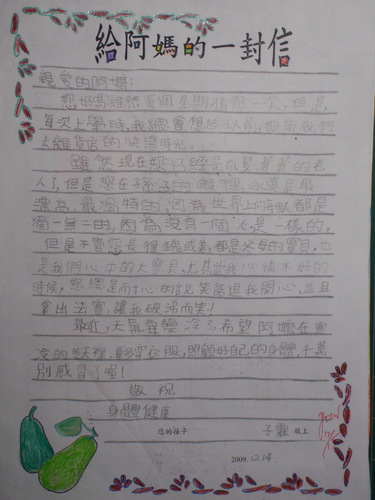 給阿媽的一封信
親愛的阿嬤:
雖然 個星期 一次,但是
每次上學時,我總會想起以前 我們
去雜貨店的快樂時光。
雖然現在您已經是白髮蒼蒼的老
人了,但是您在孫子的眼裡,永遠是最
漂亮、最獨特的,因為世界上的 都是
獨一無二的,因為沒有一個人是一樣的,
但是不管您長得 或美,都是父母的寶貝,也
是我們心中的大寶貝,尤其當我心情不好的
時候,您總是耐心的說笑話逗我開心,並且
拿出法寶,讓我破涕而笑!
最近,大氣 變冷了,希望阿嬤在寒
冷的冬天裡, 穿衣服,照顧好自己的身體,千萬
別感冒了喔!
敬祝
身體健康
您的孫子 子霖 敬上
2009.12.14.